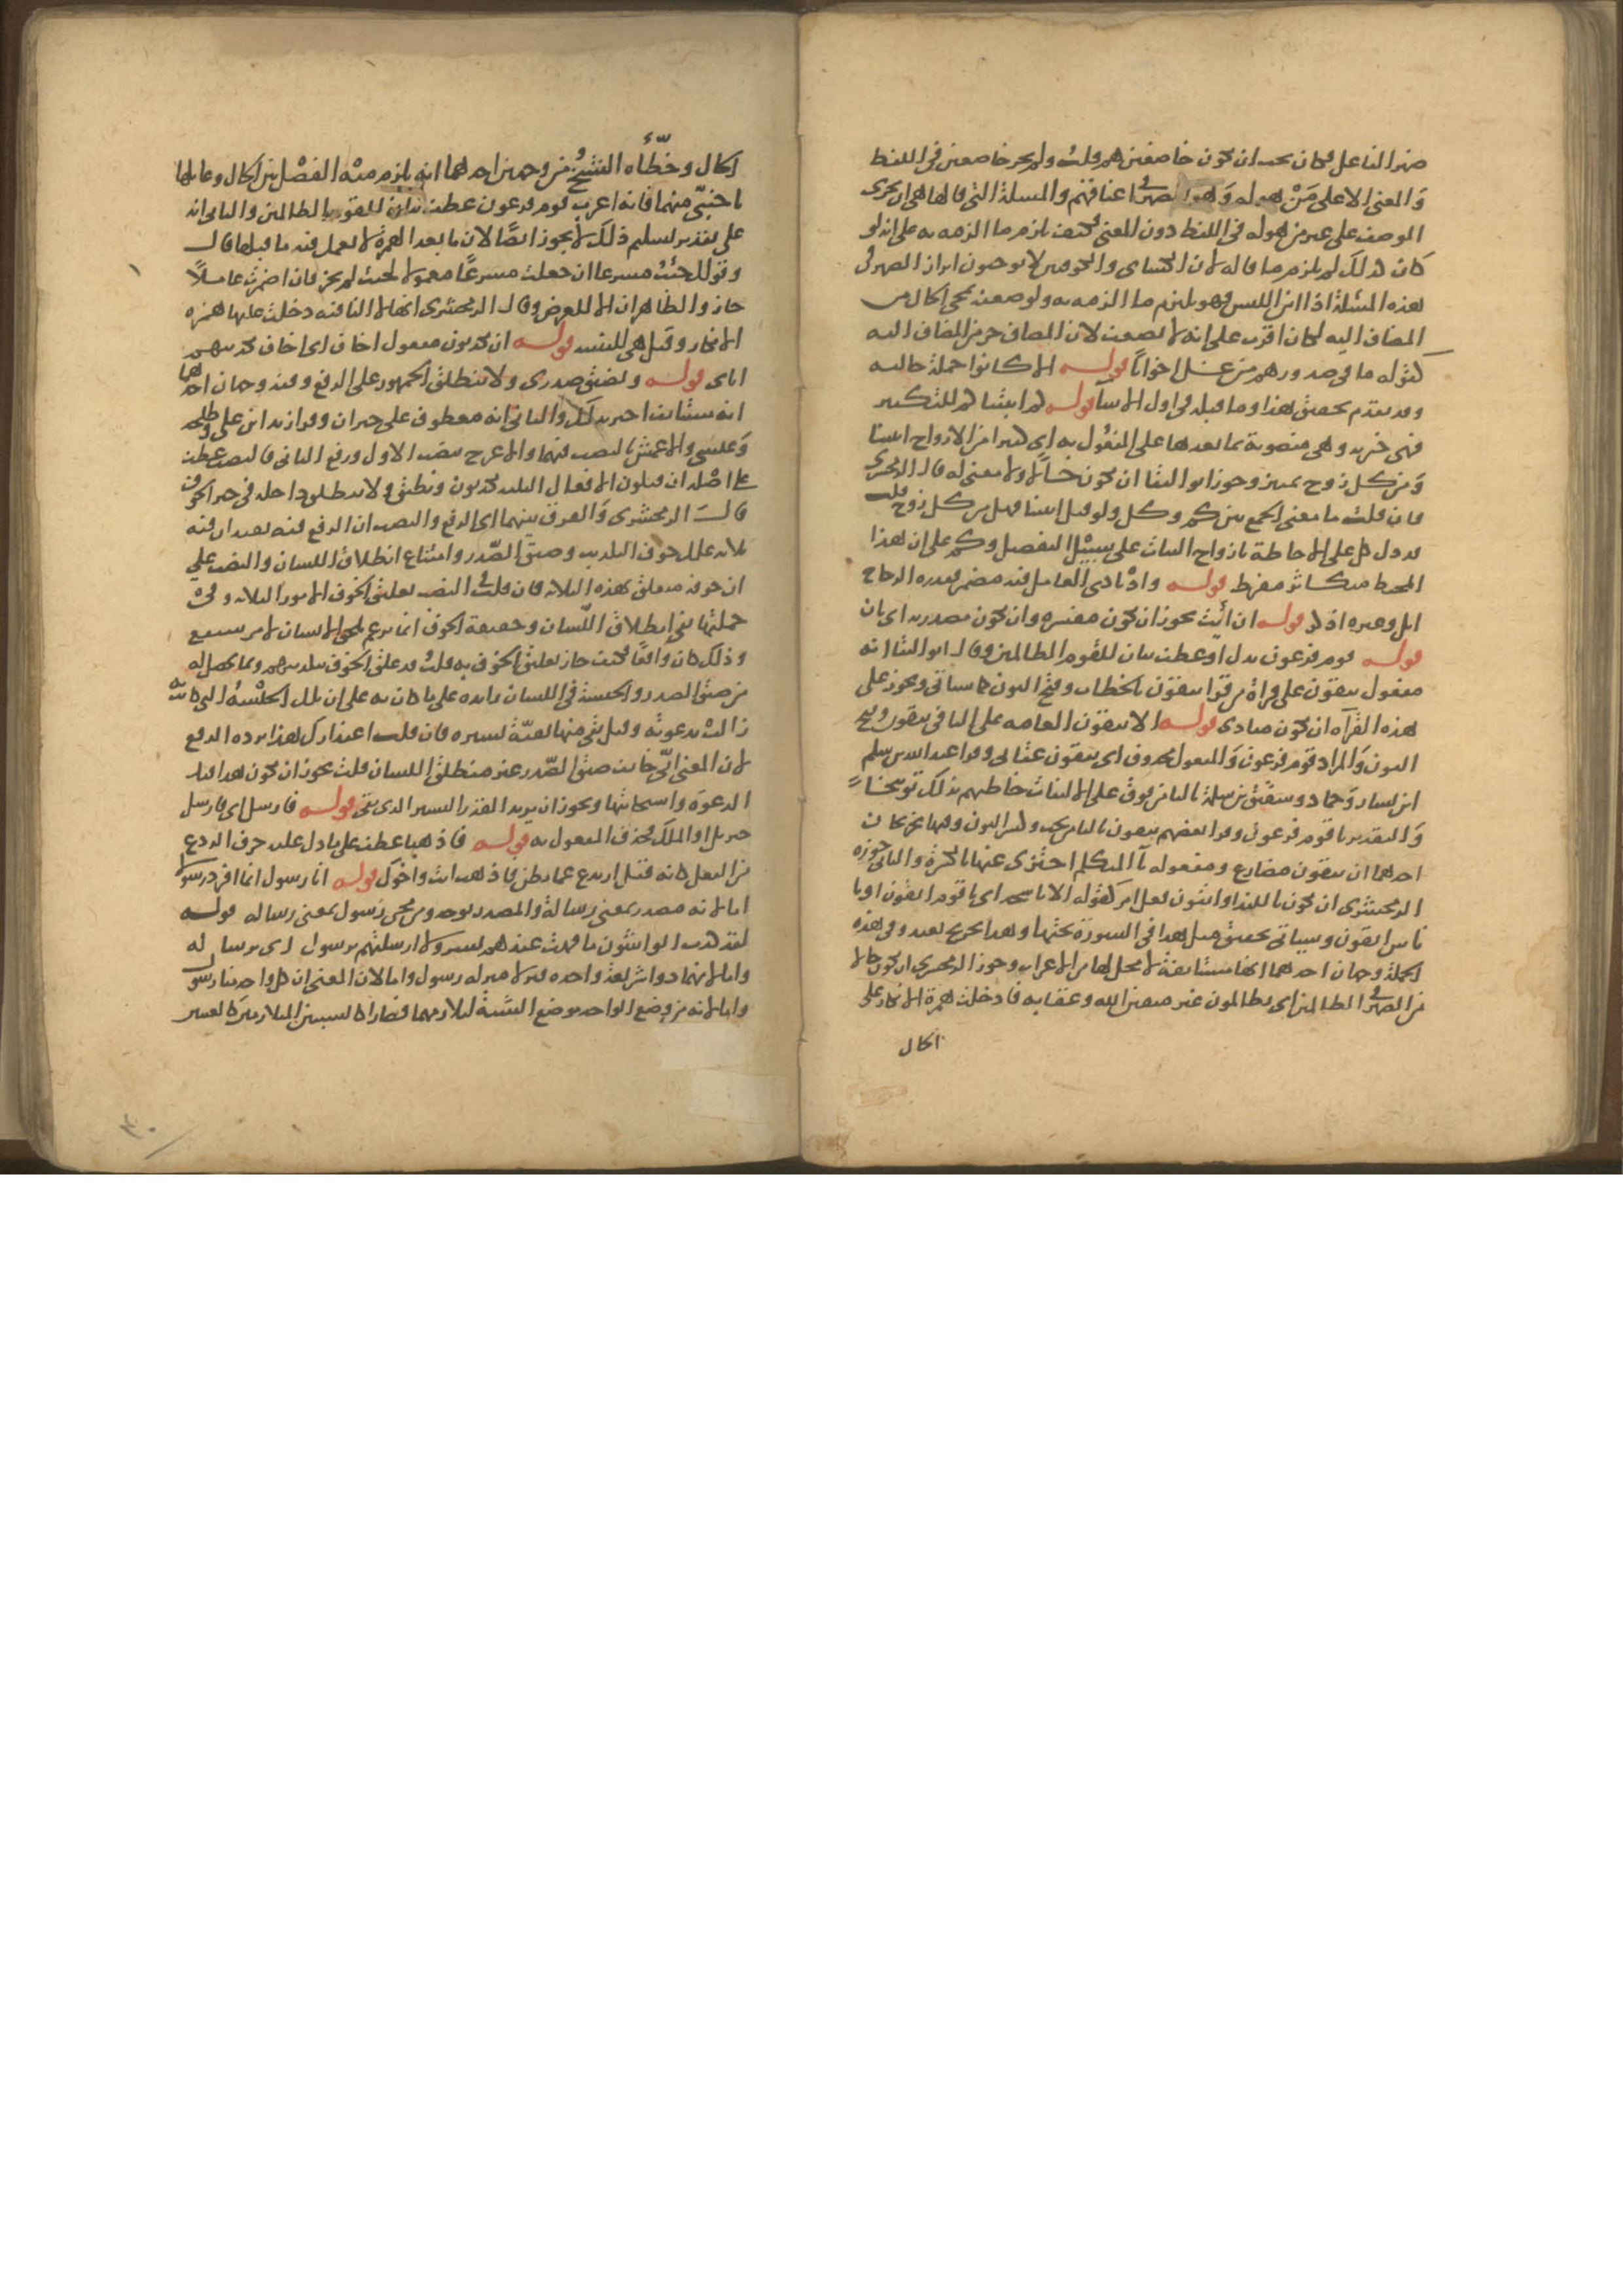 ضمير الفاعل فكان يجب ان يكون خاضعين هم قلت ولم يجر خاضعين في اللفظ
والمعنى الا على من هو له وهو الضمير في اعناقهم والمسلة التي قالها هي ان يجري
الوصف على غير من هو له في اللفظ دون المعنى فكيف يلزم ما الزمه به على انه لو
كان كذلك لم يلزم ما قاله لان الكسائي والكوفيين لا يوجبون ابراز الضمير في
هذه المسئلة اذا امن اللبس فهو يلتزم ما الزمه به ولو ضعف بمجي الحال من
المضاف اليه لكان اقرب على انه لا يضعف لان المضاف جزء من المضاف اليه
كقوله ما في صدورهم من غل اخوانا قوله الا كانوا جملة حالية
وقد تقدم تحقيق هذا وما قبله في اول الانبيا قوله كم انبتنا كم للتكثير
فهي خبرية وهي منصوبة بما بعدها على المفعول به اي كثيرا من الازواج انبتنا
ومن كل زوج تمييز وجوز ابو البقا ان يكون حالا ولا معنى له قال الزمخشري
فان قلت ما معنى الجمع بين كم وكل ولو قيل انبتنا فيها من كل زوج قلت
قد دل كل على الاحاطة بازواج النبات على سبيل التفصيل وكم على ان هذا
المحيط متكاثر مفرط قوله واذ نادى العامل فيه مضمر فقدره الزجاج
اتل وغيره اذكر قوله ان ائت يجوز ان تكون مفسرة وان تكون مصدرية اي بان
قوله قوم فرعون بدل او عطف بيان للقوم الظالمين وقال ابو البقا انه
مفعول يتقون على قراة من قرا يتقون بالخطاب وفتح النون كما سياتي ويجوز على
هذه القراة ان يكون منادى قوله الا يتقون العامة على اليا في يتقون وفتح
النون والمراد قوم فرعون والمفعول محذوف اي يتقون عقابي وقرا عبد الله بن مسلم
ابن يسار وحماد وشقيق بن سلمة بالتا من فوق على الالتفات خاطبهم بذلك توبيخا
والتقدير يا قوم فرعون وقرا بعضهم يتقون باليا من تحت وكسر النون وفيها تخريجان
احدهما ان يتقون مضارع ومفعوله يا المتكلم اجتزى عنها بالكسرة والثاني جوزه
الزمخشري ان تكون يا للندا واتقون فعل امر كقوله الا يا اسجدوا اي يا قوم اتقون او يا
ناس اتقون وسياتي تحقيق مثل هذا في السورة تحتها وهذا تخريج بعيد وفي هذه
الجملة وجهان احدهما انها مستانفة لا محل لها من الاعراب وجوز الزمخشري ان تكون حالا
من الضمير في الظالمين اي يظلمون غير متقين الله وعقابه فادخلت همزة الانكار على
الحال
الحال وخطأه الشيخ من وجهين احدهما انه يلزم منه الفصل بين الحال وعاملها
باجنبي منهما فانه اعرب قوم فرعون عطف بيان للقوم الظالمين والثاني انه
على تقدير تسليم ذلك لا يجوز ايضا لان ما بعد الهمزة لا يعمل فيه ما قبلها قال
وقولك جئت مسرعا ان جعلت مسرعا معمولا لجئت لم يجز فان اضمرت عاملا
جاز والظاهر ان الا للعرض وقال الزمخشري انها لا النافية دخلت عليها همزة
الانكار وقيل هي للتنبيه قوله ان يكذبون مفعول اخاف اي اخاف تكذيبهم
اياي قوله ويضيق صدري ولا ينطلق الجمهور على الرفع وفيه وجهان احدهما
انه مستانف اخبر بذلك والثاني انه معطوف على خبر ان وقرا زيد ابن علي وطلحه
وعيسى والاعمش بالنصب فيهما والاعرج بنصب الاول ورفع الثاني فالنصب عطف
على صلة ان فتكون الافعال الثلاثة يكذبون ويضيق ولا ينطلق داخلة في حيز الخوف
قال الزمخشري والفرق بينهما اي الرفع والنصب ان الرفع فيه يفيد ان فيه
ثلاث علل خوف التكذيب وضيق الصدر وامتناع انطلاق اللسان والنصب على
ان خوفه متعلق بهذه الثلاثة فان قلت في النصب تعليق الخوف بالامور الثلاثة وفي
جملتها نفي انطلاق اللسان وحقيقة الخوف انما تلحق الانسان لامر سيقع
وذلك كان واقعا فكيف جاز تعليق الخوف به قلت قد علق الخوف بتكذيبهم وبما يحصل له
من ضيق الصدر والحبسة في اللسان زايدة على ما كان به على ان تلك الحبسة التي كانت به
زالت بدعوته وقيل بقي منها بقية يسيرة فان قلت اعتذارك هذا يرده الرفع
لان المعنى اني خائف ضيق الصدر غير منطلق اللسان قلت يجوز ان يكون هذا قبل
الدعوة واستجابتها ويجوز ان يريد القدر اليسير الذي بقي قوله فارسل اي فارسل
جبريل او الملك فحذف المفعول به قوله فاذهبا عطف على ما دل عليه حرف الردع
من الفعل كانه قيل ارتدع عما تظن فاذهب انت واخوك قوله انا رسول انما افرد رسولا
اما لانه مصدر بمعنى رسالة والمصدر يوحد ومن مجي رسول بمعنى رساله قوله
لقد كذب الواشون ما فهت عندهم بسر ولا ارسلتهم برسول اي برساله
واما لانهما ذوا شريعة واحدة فنزلا منزلة رسول واما لان المعنى ان كل واحد منا رسول
واما لانه من وضع الواحد موضع التثنية لتلازمهما فصارا كالشيئين المتلازمين كالعينين
٣٠